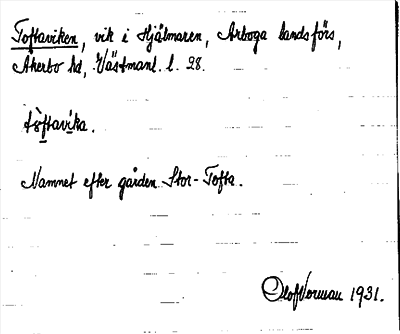 Toftaviken, vik i Hjälmaren, Arboga landsförs,
Åkerbo hd, Västmanl. l. 28.
tòftavìka.
Namnet efter gården Stor-Tofta.
Olof Norman 1931.